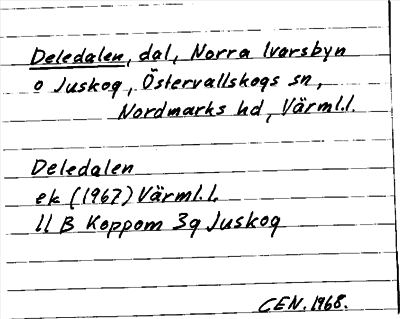 Deledalen, dal, Norra Ivarsbyn
o Juskog, Östervallskogs sn,
Nordmarks hd, Värml.l.
Deledalen
ek (1967) Värml.l.
11 B Koppom 3g Juskog
CEN. 1968.